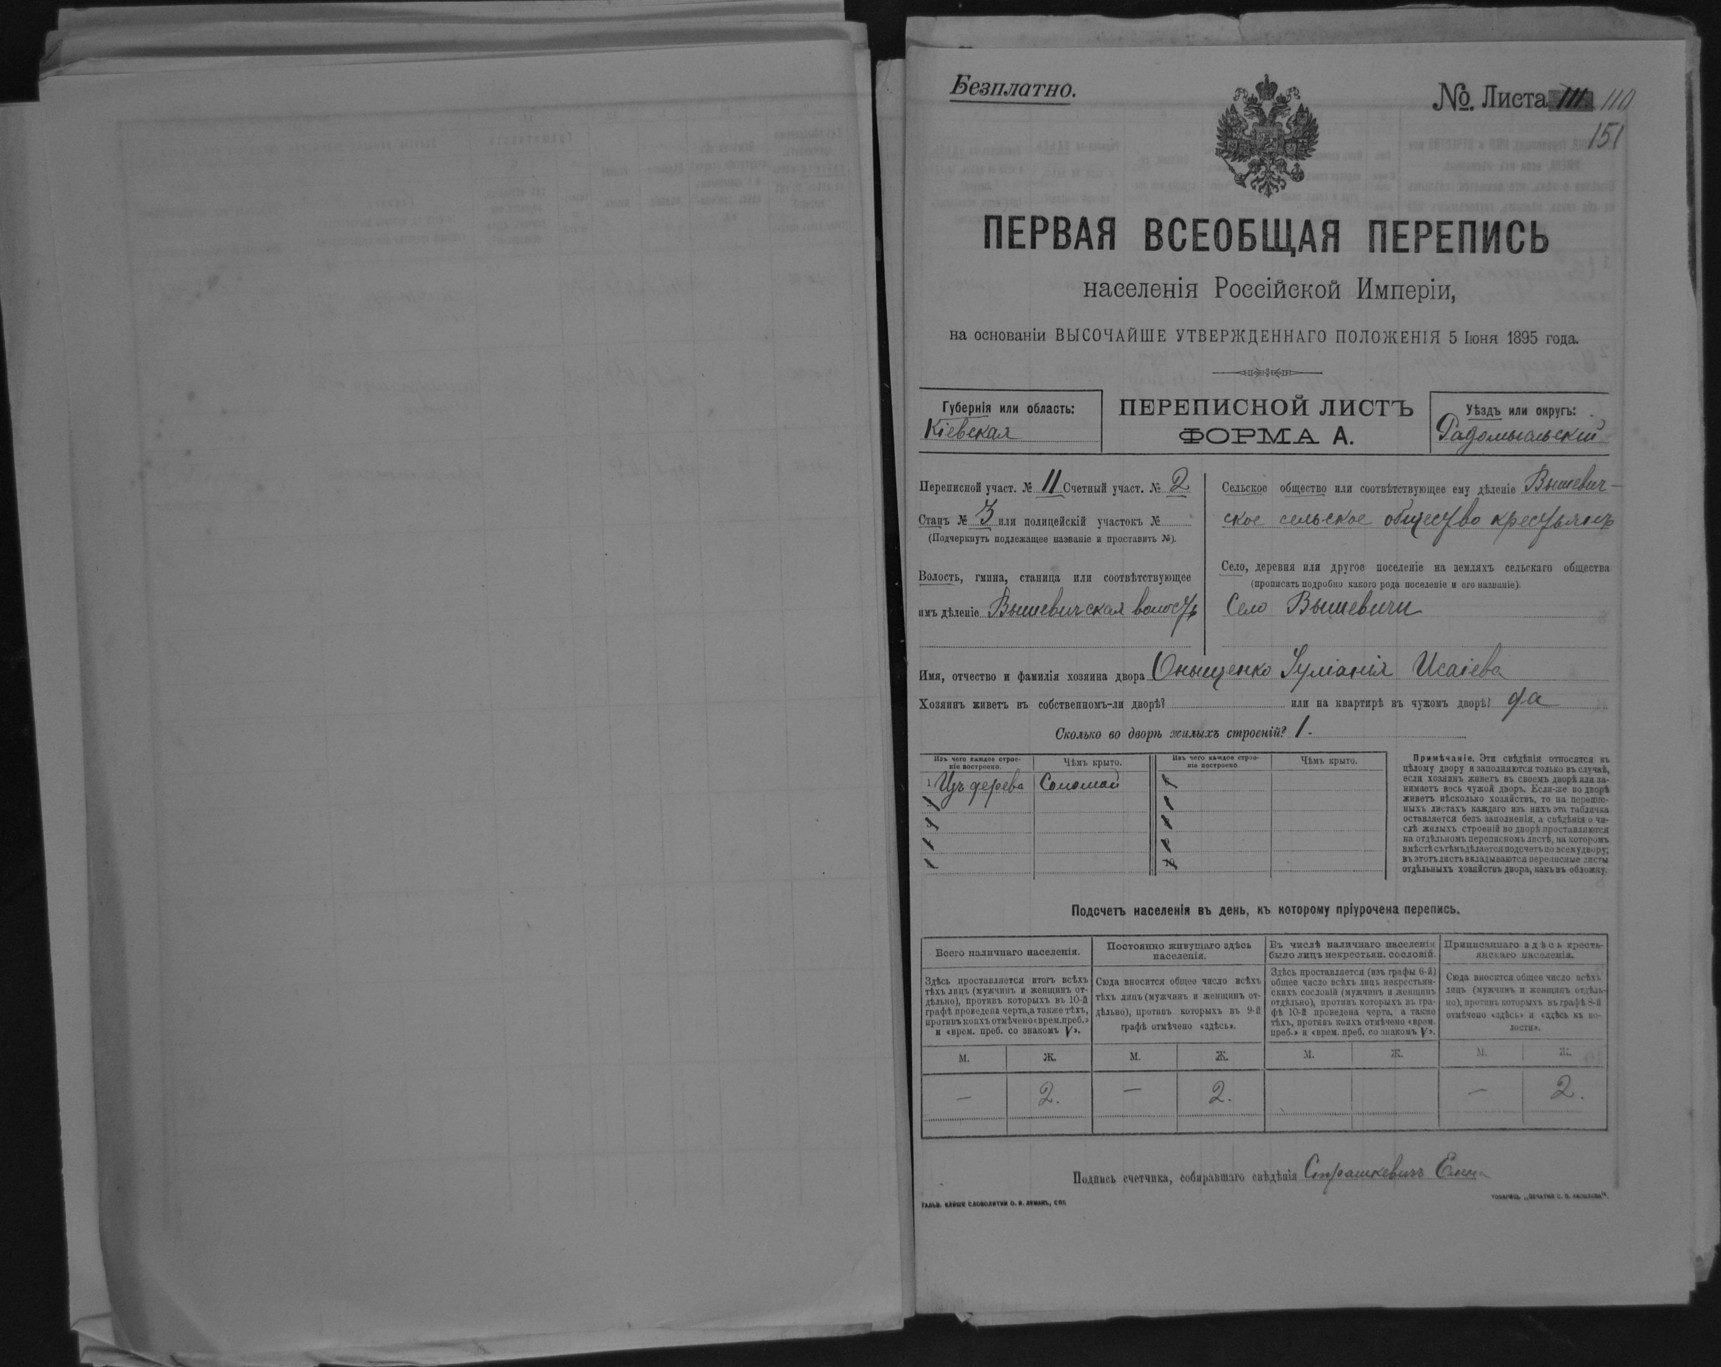 Безплатно.
№. Листа 111 110
151
ПЕРВАЯ ВСЕОБЩАЯ ПЕРЕПИСЬ
населенія Россійской Имперіи,
на основаніи ВЫСОЧАЙШЕ УТВЕРЖДЕННАГО ПОЛОЖЕНІЯ 5 Іюня 1895 года.
Губернія или область:
Кіевская
ПЕРЕПИСНОЙ ЛИСТЪ
ФОРМА А.
Уѣздъ или округъ:
Радомысльскій
Переписной участ. № 11 Счетный участ. № 2
Станъ № 3 или полицейскій участокъ №
(Подчеркнуть подлежащее названіе и проставить №).
Волость, гмина, станица или соотвѣтствующее
имъ дѣленіе Вышевичская волость
Сельское общество или соотвѣтствующее ему дѣленіе Вышевич-
ское сельское общество крестьянъ
Село, деревня или другое поселеніе на земляхъ сельскаго общества
(прописать подробно какого рода поселеніе и его названіе).
Село Вышевичи
Имя, отчество и фамилія хозяина двора Онищенко Іуліанія Исаіева
Хозяинъ живетъ въ собственномъ-ли дворѣ? или на квартирѣ въ чужомъ дворѣ? да
Сколько во дворѣ жилыхъ строеній? 1.
Изъ чего каждое строе-
ніе построено.
Чѣмъ крыто.
Изъ чего каждое строе-
ніе построено.
Чѣмъ крыто.
1 Изъ дерева Соломой
Примѣчаніе. Эти свѣдѣнія относятся къ
цѣлому двору и заполняются только въ случаѣ,
если хозяинъ живетъ въ своемъ дворѣ или за-
нимаетъ весь чужой дворъ. Если-же во дворѣ
живетъ нѣсколько хозяйствъ, то на перепис-
ныхъ листахъ каждаго изъ нихъ эта табличка
оставляется безъ заполненія, а свѣдѣнія о чи-
слѣ жилыхъ строеній во дворѣ проставляются
на отдѣльномъ переписномъ листѣ, на которомъ
вмѣстѣ съ тѣмъ дѣлается подсчетъ по всему двору;
въ этотъ листъ вкладываются переписные листы
отдѣльныхъ хозяйствъ двора, какъ въ обложку.
Подсчетъ населенія въ день, къ которому пріурочена перепись.
Всего наличнаго населенія.
Постоянно живущаго здѣсь
населенія.
Въ числѣ наличнаго населенія
было лицъ некрестьян. сословій.
Приписаннаго здѣсь кресть-
янскаго населенія.
Здѣсь проставляется итогъ всѣхъ
тѣхъ лицъ (мужчинъ и женщинъ от-
дѣльно), противъ которыхъ въ 10-й
графѣ проведена черта, а также тѣхъ,
противъ коихъ отмѣчено «врем. преб.»
и «врем. преб. со знакомъ V».
Сюда вносится общее число всѣхъ
тѣхъ лицъ (мужчинъ и женщинъ от-
дѣльно), противъ которыхъ въ 9-й
графѣ отмѣчено «здѣсь».
Здѣсь проставляется (изъ графы 6-й)
общее число всѣхъ лицъ некрестьян-
скихъ сословій (мужчинъ и женщинъ
отдѣльно), противъ которыхъ въ гра-
фѣ 10-й проведена черта, а также
тѣхъ, противъ коихъ отмѣчено «врем.
преб.» и «врем. преб. со знакомъ V».
Сюда вносится общее число всѣхъ
лицъ (мужчинъ и женщинъ отдѣль-
но), противъ которыхъ въ графѣ 8-й
отмѣчено «здѣсь» и «здѣсь въ во-
лости».
М. Ж. М. Ж. М. Ж. М. Ж.
— 2. — 2. — 2.
Подпись счетчика, собиравшаго свѣдѣнія Страшкевичъ
ГАЛЬВ. КЛИШЕ СЛОВОЛИТНИ О. И. ЛЕМАНЪ, СПБ.